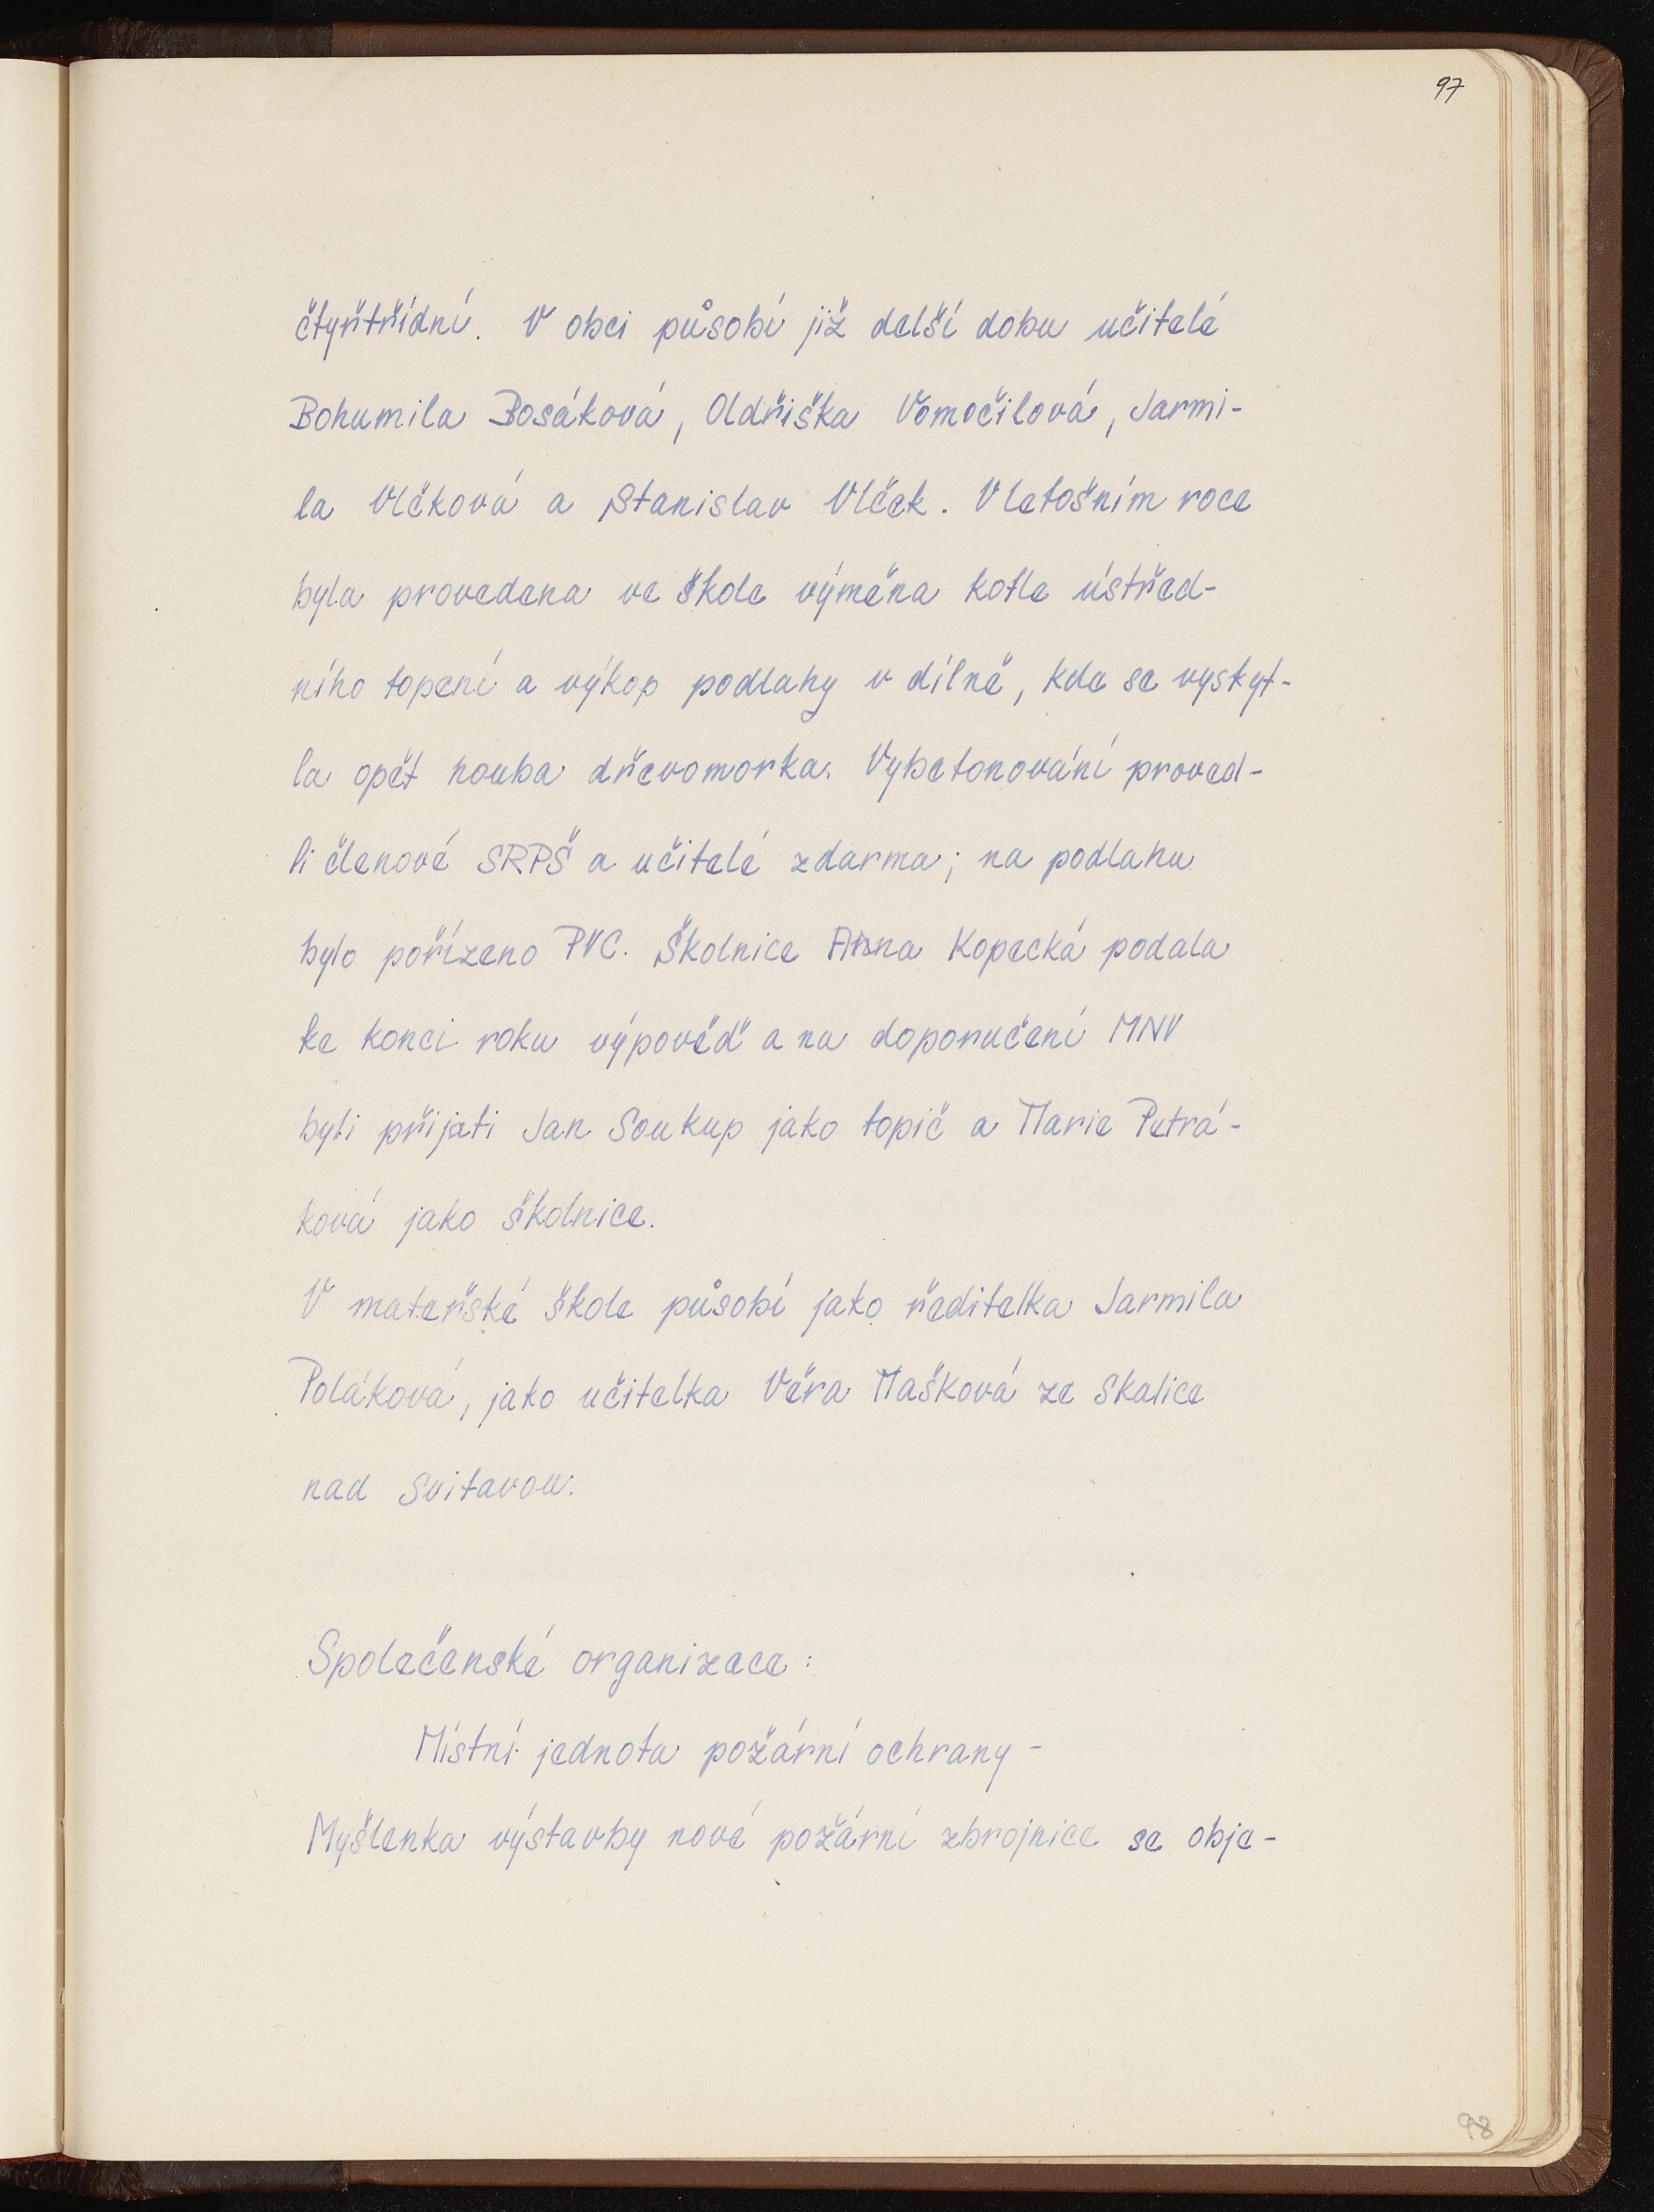 97
čtyřtřídní. V obci působí již delší dobu učitelé
Bohumila Bosáková, Oldřiška Vomočilová, Jarmi-
la Vlčková a Stanislav Vlček. V letošním roce
byla provedena ve škole výměna kotle ústřed-
ního topení a výkop podlahy v dílně, kde se vyskyt-
la opět houba dřevomorka. Vybetonování proved-
li členové SRPŠ a učitelé zdarma; na podlahu
bylo pořízeno PVC. Školnice Anna Kopecká podala
ke konci roku výpověď a na doporučení MNV
byli přijati Jan Soukup jako topič a Marie Petrá-
ková jako školnice.
V mateřské škole působí jako ředitelka Jarmila
Poláková, jako učitelka Věra Mašková ze Skalice
nad Svitavou.
Společenské organizace:
Místní jednota požární ochrany -
Myšlenka výstavby nové požární zbrojnice se obje-
98